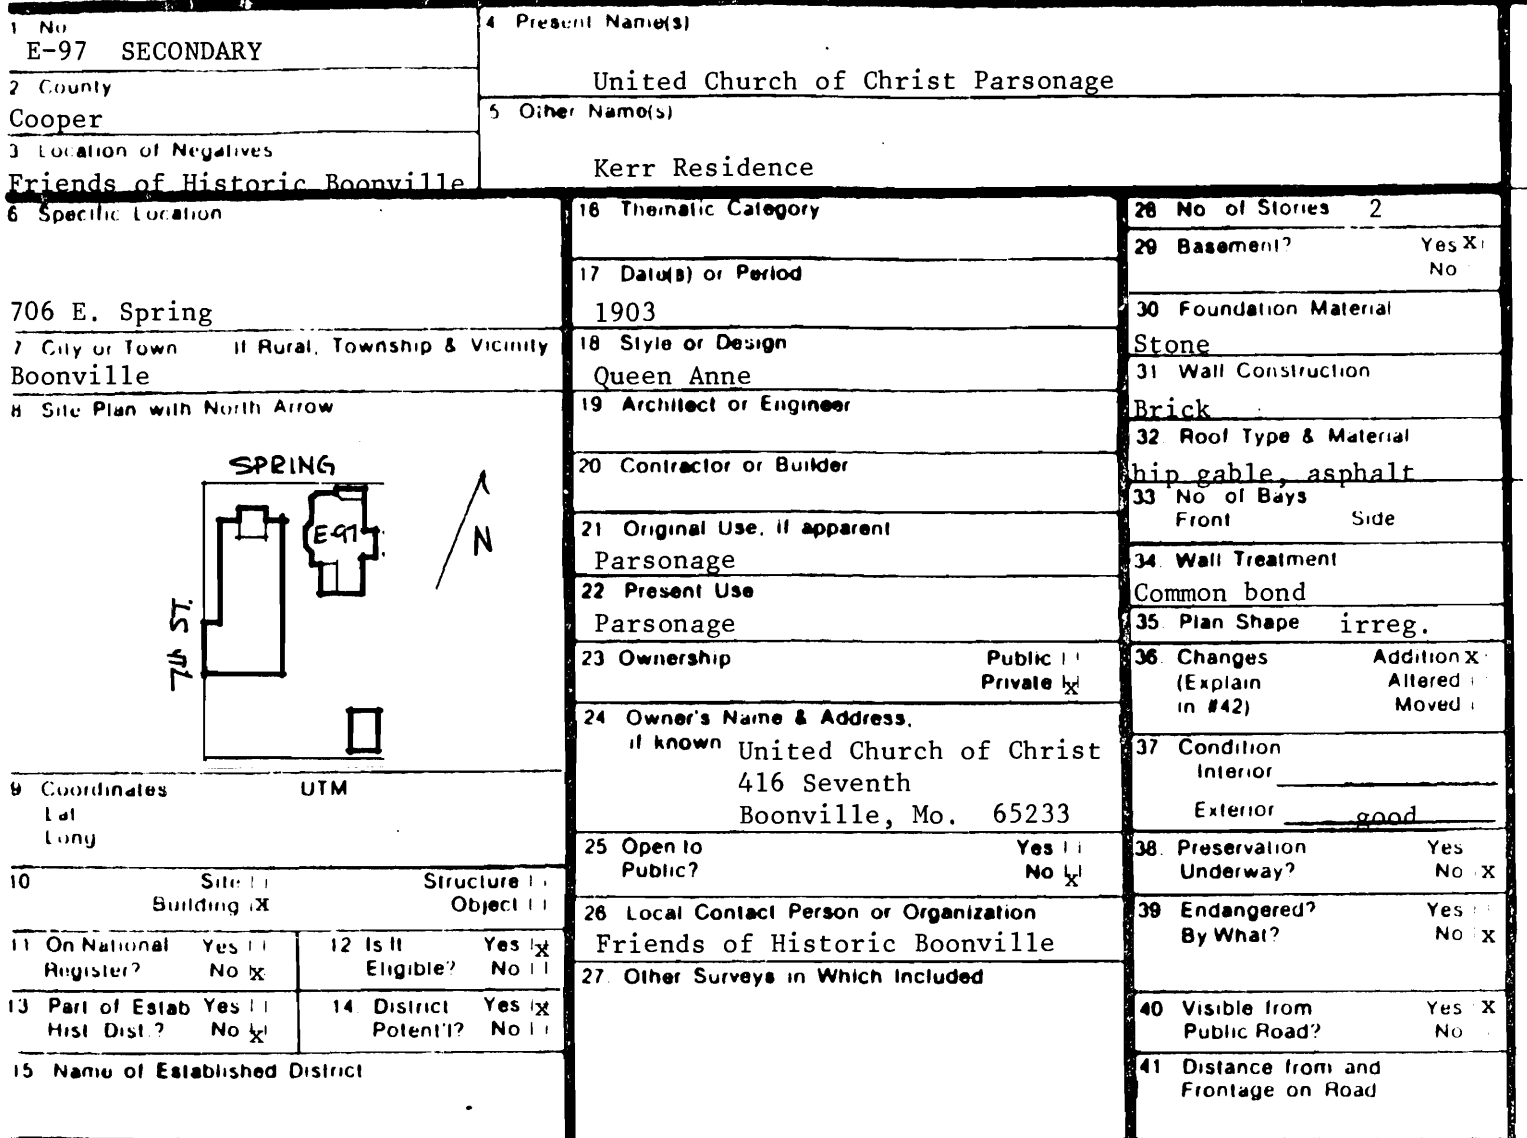 1 No
E-97 SECONDARY
2 County
Cooper
3 Location of Negatives
Friends of Historic Boonville
4 Present Name(s)
United Church of Christ Parsonage
5 Other Name(s)
Kerr Residence
6 Specific Location
706 E. Spring
7 City or Town If Rural, Township & Vicinity
Boonville
8 Site Plan with North Arrow
SPRING
E-97
N
7TH ST.
9 Coordinates UTM
Lat
Long
10 Site Structure
Building X Object
11 On National Yes
Register? No X
12 Is It Yes X
Eligible? No
13 Part of Estab Yes
Hist. Dist.? No X
14. District Yes X
Potent'l? No
15 Name of Established District
16 Thematic Category
17 Date(s) or Period
1903
18 Style or Design
Queen Anne
19 Architect or Engineer
20 Contractor or Builder
21 Original Use, if apparent
Parsonage
22 Present Use
Parsonage
23 Ownership Public
Private X
24 Owner's Name & Address,
if known United Church of Christ
416 Seventh
Boonville, Mo. 65233
25 Open to Yes
Public? No X
26 Local Contact Person or Organization
Friends of Historic Boonville
27. Other Surveys in Which Included
28 No of Stories 2
29 Basement? Yes X
No
30 Foundation Material
Stone
31 Wall Construction
Brick
32. Roof Type & Material
hip gable, asphalt
33 No of Bays
Front Side
34. Wall Treatment
Common bond
35. Plan Shape irreg.
36. Changes Addition X
(Explain Altered
in #42) Moved
37 Condition
Interior
Exterior good
38. Preservation Yes
Underway? No X
39 Endangered? Yes
By What? No X
40 Visible from Yes X
Public Road? No
41 Distance from and
Frontage on Road